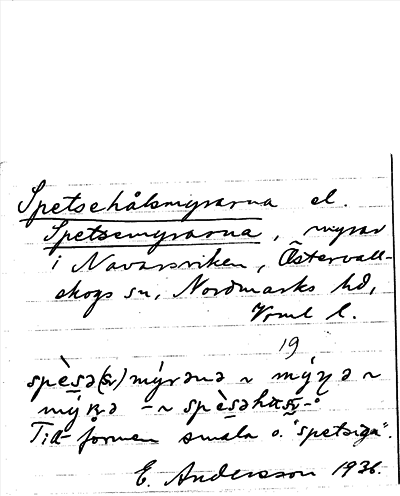 Spetsehålsmyrarna el.
Spetsemyrarna, myrar
i Navarsviken, Östervall-
skogs sn, Nordmarks hd,
Vrml l.
19
spèsə(ʂ)mýrəɳə ~ mýɳə ~
Till formen smala o. "spetsiga".
E. Andersson 1936.